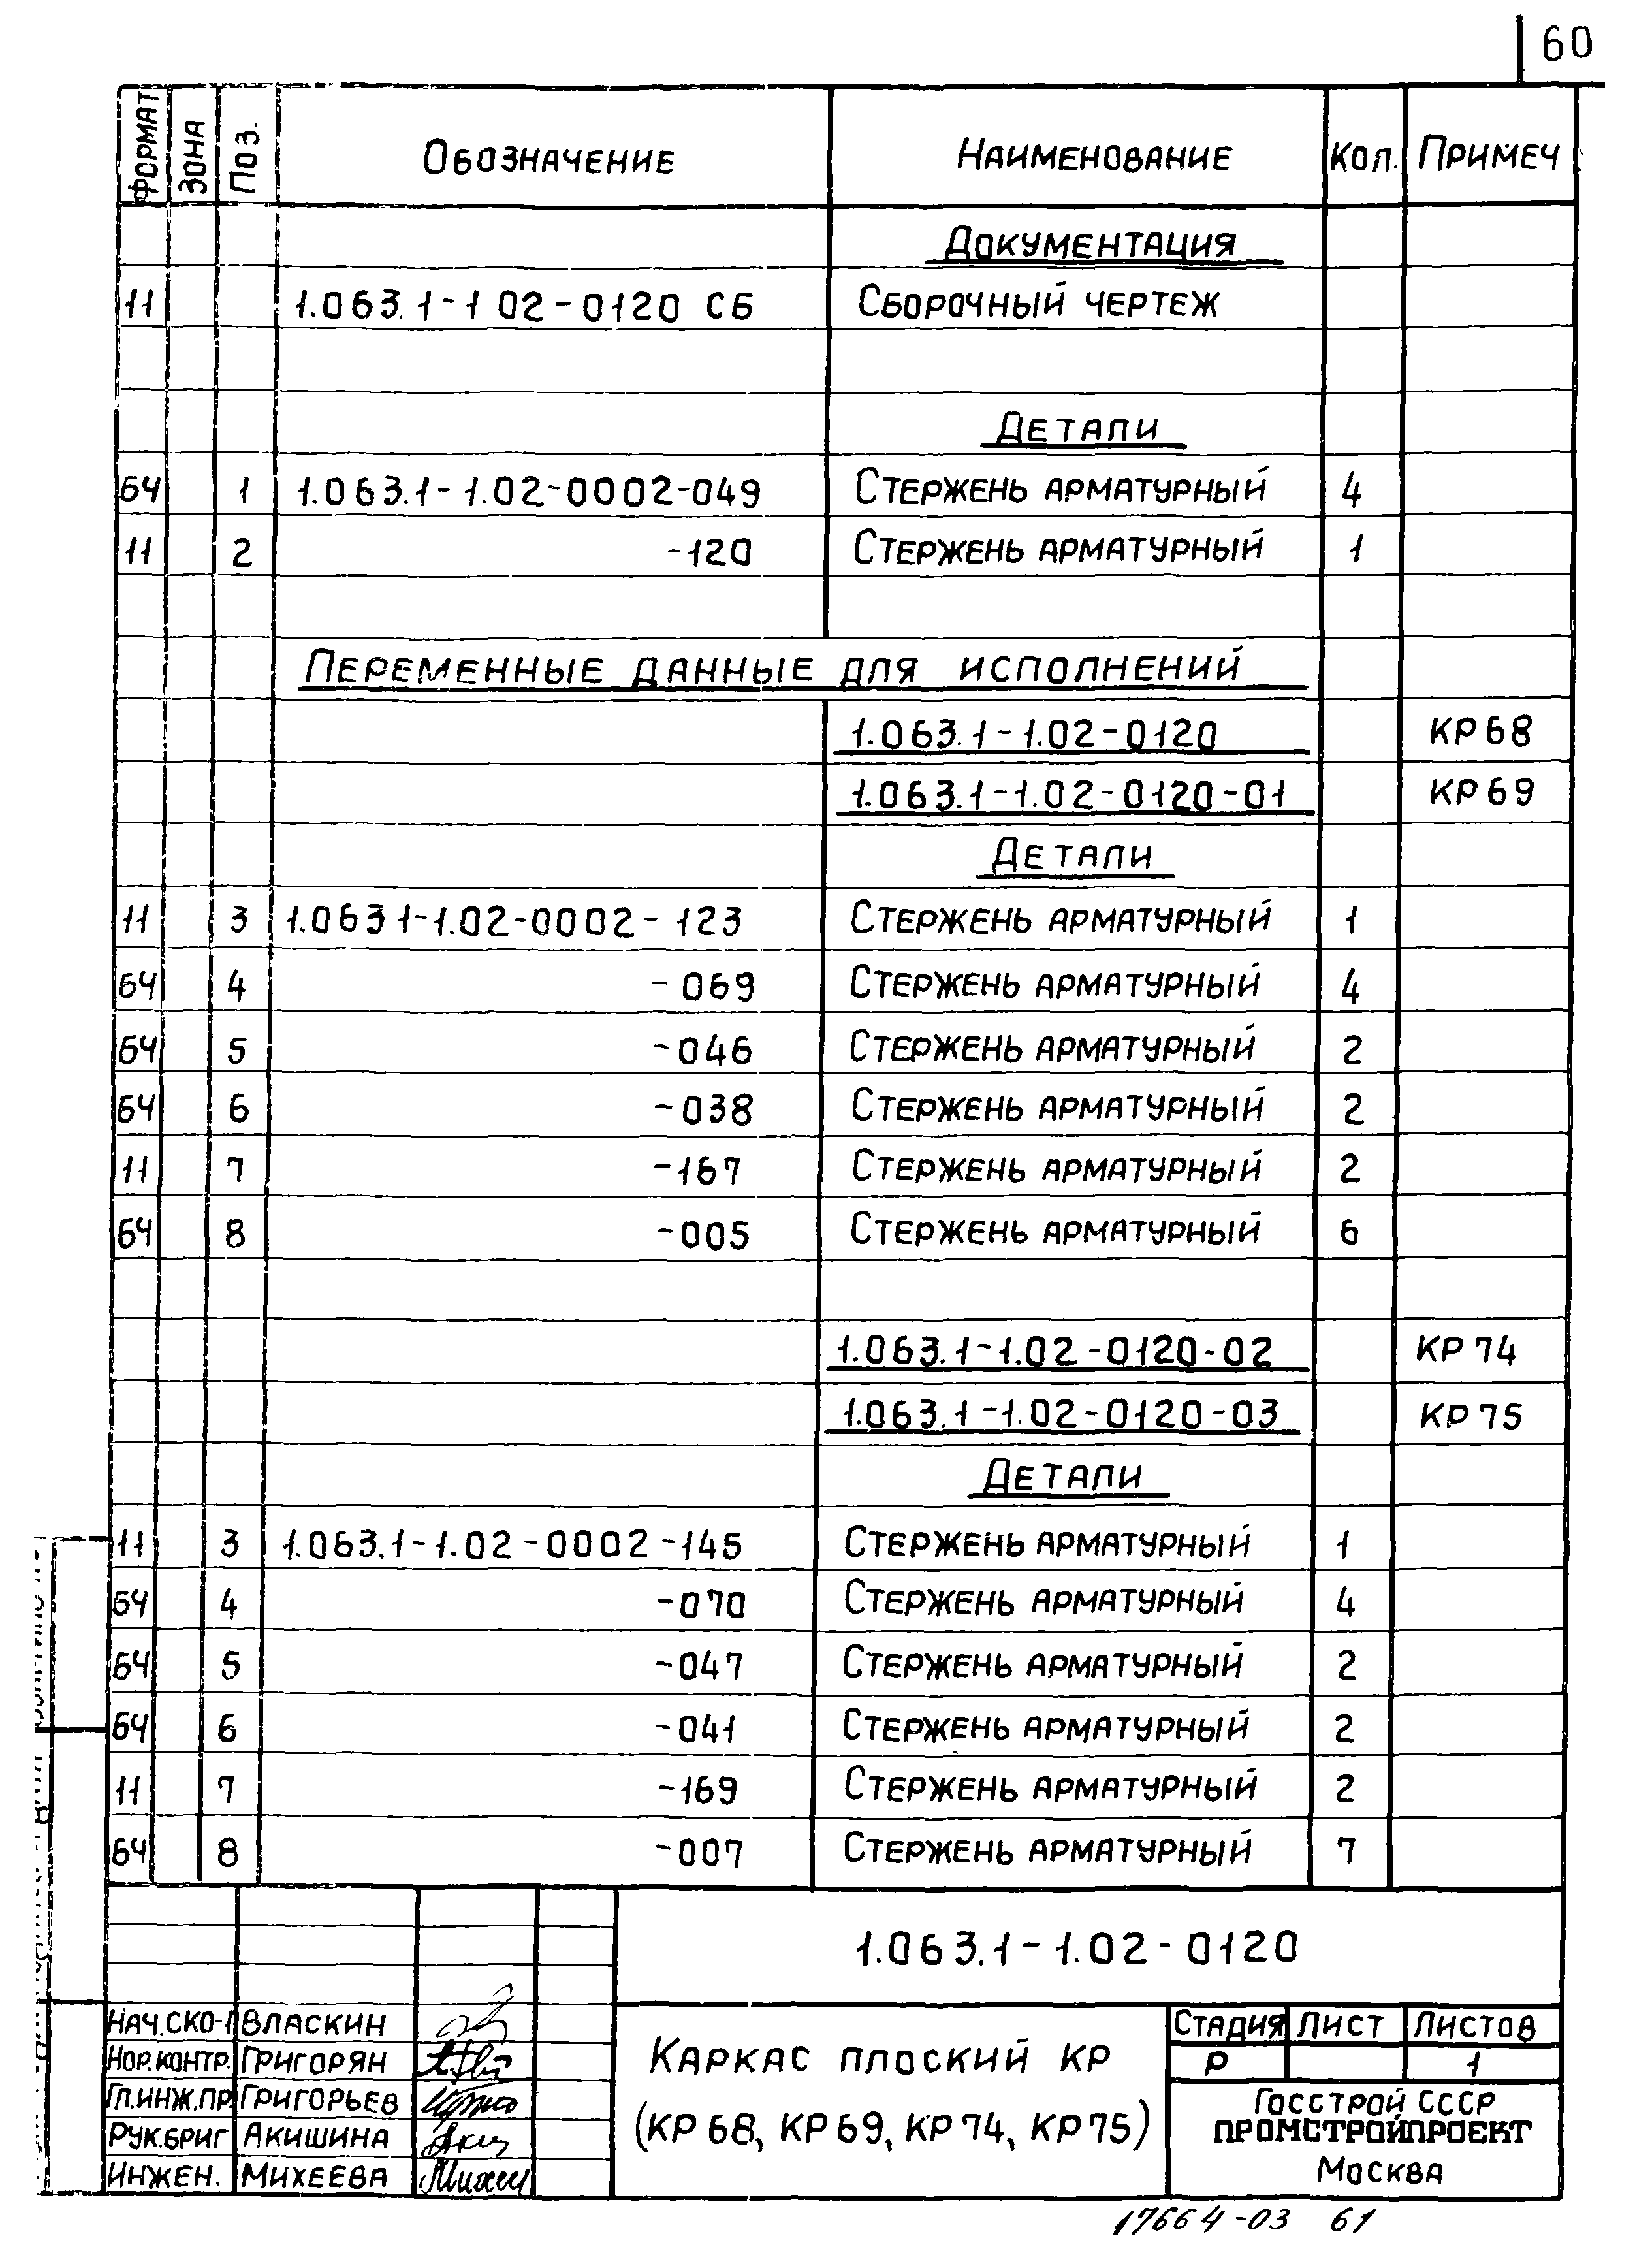 60
ФОРМАТ ЗОНА ПОЗ. ОБОЗНАЧЕНИЕ НАИМЕНОВАНИЕ КОЛ. ПРИМЕЧ
ДОКУМЕНТАЦИЯ
11 1.063.1-1 02-0120 СБ СБОРОЧНЫЙ ЧЕРТЕЖ
ДЕТАЛИ
БЧ 1 1.063.1-1.02-0002-049 СТЕРЖЕНЬ АРМАТУРНЫЙ 4
11 2 -120 СТЕРЖЕНЬ АРМАТУРНЫЙ 1
ПЕРЕМЕННЫЕ ДАННЫЕ ДЛЯ ИСПОЛНЕНИЙ
1.063.1-1.02-0120 КР68
1.063.1-1.02-0120-01 КР69
ДЕТАЛИ
11 3 1.0631-1.02-0002-123 СТЕРЖЕНЬ АРМАТУРНЫЙ 1
БЧ 4 -069 СТЕРЖЕНЬ АРМАТУРНЫЙ 4
БЧ 5 -046 СТЕРЖЕНЬ АРМАТУРНЫЙ 2
БЧ 6 -038 СТЕРЖЕНЬ АРМАТУРНЫЙ 2
11 7 -167 СТЕРЖЕНЬ АРМАТУРНЫЙ 2
БЧ 8 -005 СТЕРЖЕНЬ АРМАТУРНЫЙ 6
1.063.1-1.02-0120-02 КР74
1.063.1-1.02-0120-03 КР75
ДЕТАЛИ
11 3 1.063.1-1.02-0002-145 СТЕРЖЕНЬ АРМАТУРНЫЙ 1
БЧ 4 -070 СТЕРЖЕНЬ АРМАТУРНЫЙ 4
БЧ 5 -047 СТЕРЖЕНЬ АРМАТУРНЫЙ 2
БЧ 6 -041 СТЕРЖЕНЬ АРМАТУРНЫЙ 2
11 7 -169 СТЕРЖЕНЬ АРМАТУРНЫЙ 2
БЧ 8 -007 СТЕРЖЕНЬ АРМАТУРНЫЙ 7
1.063.1-1.02-0120
НАЧ.СКО-1 ВЛАСКИН
НОР.КОНТР. ГРИГОРЯН
ГЛ.ИНЖ.ПР. ГРИГОРЬЕВ
РУК.БРИГ АКИШИНА
ИНЖЕН. МИХЕЕВА
КАРКАС ПЛОСКИЙ КР
(КР68, КР69, КР74, КР75)
СТАДИЯ ЛИСТ ЛИСТОВ
Р 1
ГОССТРОЙ СССР
ПРОМСТРОЙПРОЕКТ
МОСКВА
17664-03 61